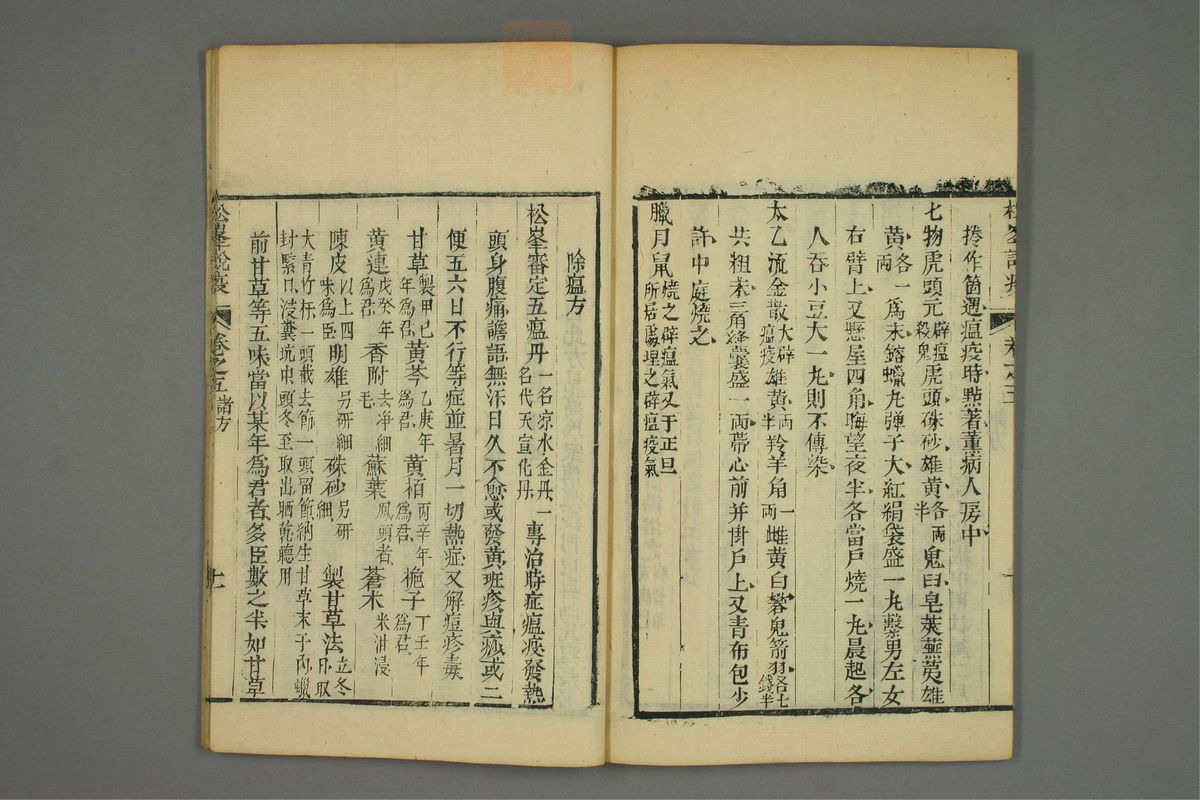 捲作筒遇瘟疫時點著薰病人房中
七物虎頭元辟瘟殺鬼虎頭硃砂雄黃各兩半鬼臼皂莢蕪荑雄
黃各一兩爲末鎔蠟丸彈子大紅絹袋盛一丸繫男左女
右臂上又懸屋四角晦望夜半各當戶燒一丸晨起各
人吞小豆大一丸則不傳染
太乙流金散大辟瘟疫雄黃兩半羚羊角一兩雌黃白礬鬼箭羽各七錢半
共粗末三角絳囊盛一兩帶心前并掛戶上又青布包少
許中庭燒之
臘月鼠燒之辟瘟氣又于正旦所居處埋之辟瘟疫氣
除瘟方
松峯審定五瘟丹一名凉水金丹一名代天宣化丹專治時症瘟疫發熱
頭身腹痛譫語無汗日久不愈或發黃斑疹與痧或二
便五六日不行等症並暑月一切熱症又解痘疹毒
甘草製甲己年爲君黃芩乙庚年爲君黃栢丙辛年爲君梔子丁壬年爲君
黃連戊癸年爲君香附去淨細毛蘇葉鳳頭者蒼术米泔浸
陳皮以上四味爲臣明雄另研細硃砂另研細製甘草法立冬日取
大青竹一頭截去節一頭留節納生甘草末于內蠟
封緊口浸糞坑中頭冬至取出晒乾聽用
前甘草等五味當以某年爲君者多臣數之半如甘草
松峯說疫
卷之五諸方
十一